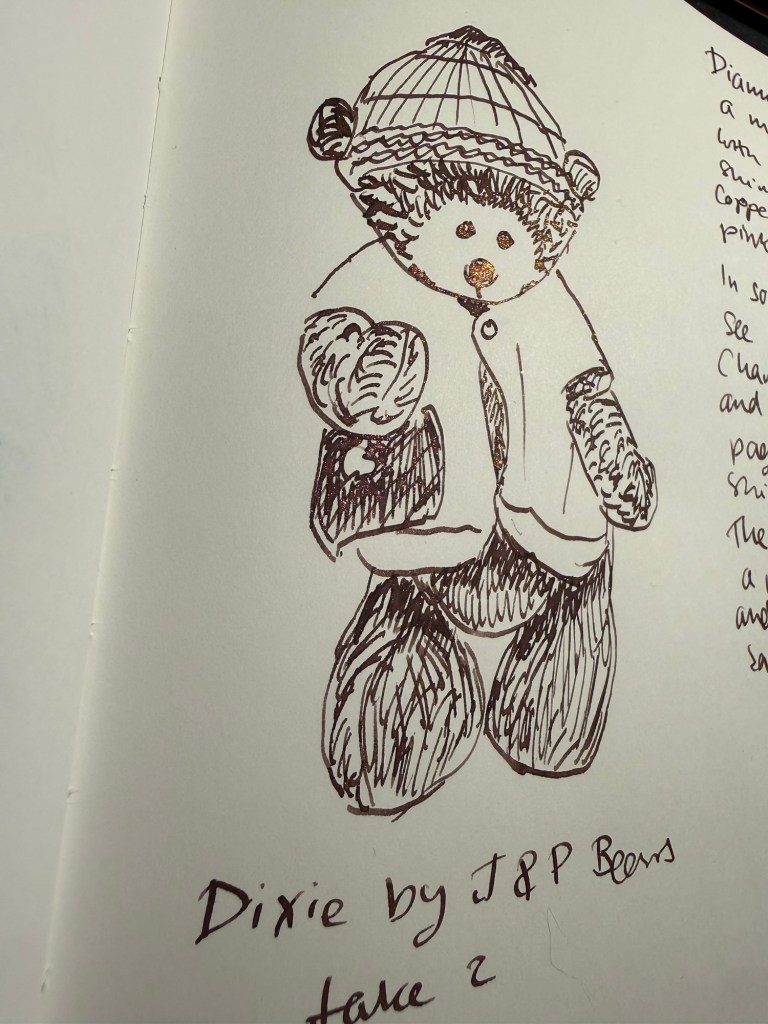 Diam
a m
with
shim
Coppe
pink
In so
see
Cha
and
pag
shi
The
a
and
Dixie by J & P Bears
take 2